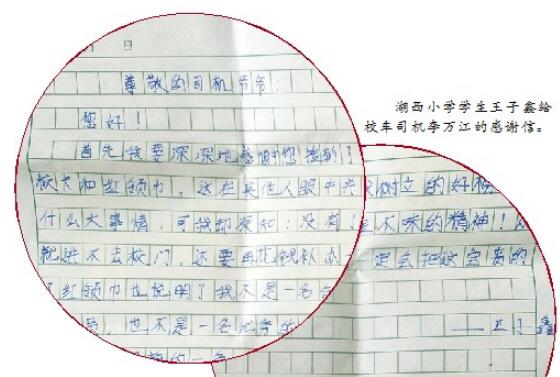 月 日
尊敬的司机爷爷：
您好！
首先我要深深地感谢您捡到了
校卡和红领巾。这在其他人眼中并
什么大事情，可我却深知：没有
就进不去校门，还要用花钱补办
了红领巾也说明了我不是一名合
员，也不是一名优秀的
的一名
树立的好榜
不昧的精神！！
定会把这宝贵的
——王子鑫
湖西小学学生王子鑫给
校车司机李万江的感谢信。